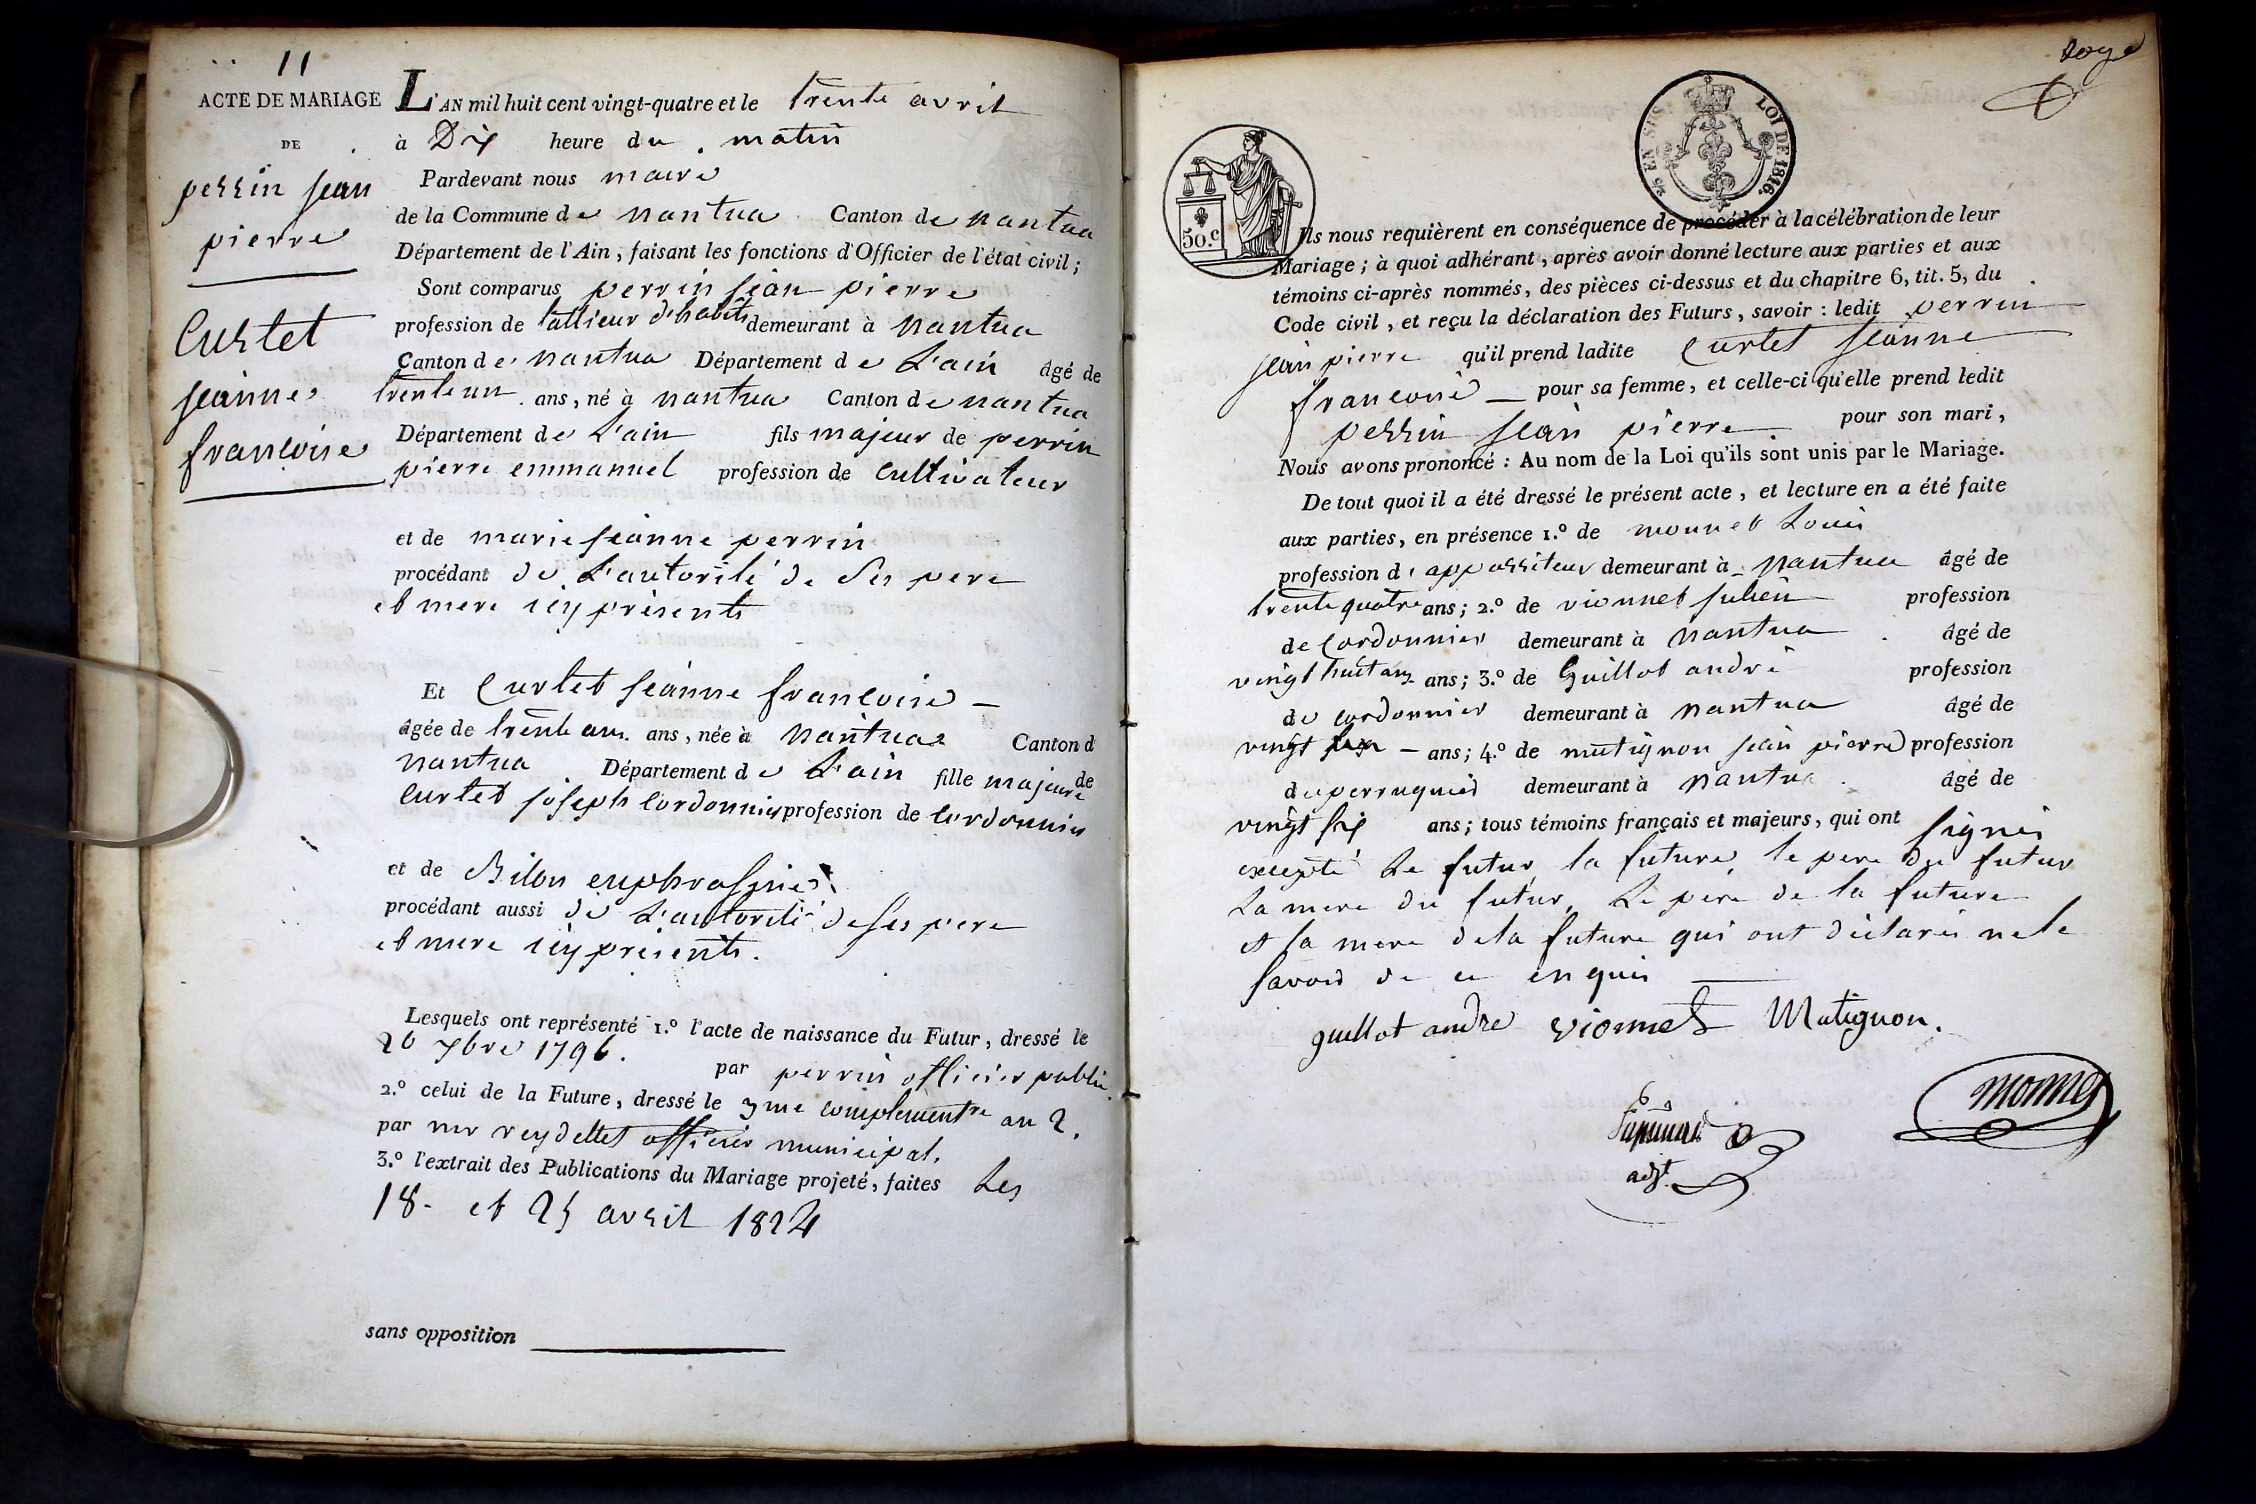 11
ACTE DE MARIAGE
DE
perrin jean
pierre
Curtet
jeanne
francoise
L'AN mil huit cent vingt-quatre et le trente avril
à Dix heure du matin
Pardevant nous maire
de la Commune de nantua Canton de nantua
Département de l'Ain, faisant les fonctions d'Officier de l'état civil;
Sont comparus perrin jean pierre
profession de tallieur d'habits demeurant à nantua
Canton de nantua Département de L'ain âgé de
trente un ans, né à nantua Canton de nantua
Département de L'ain fils majeur de perrin
pierre emmanuel profession de cultivateur
et de marie jeanne perrin
procédant de L'autorité de ses pere
et mere icy présents
Et Curtet jeanne francoise
âgée de trente ans ans, née à nantua Canton d
nantua Département de L'ain fille majeure de
curtet joseph cordonnier profession de cordonnier
et de Bilon euphrosine
procédant aussi de L'autorité de ses pere
et mere icy présents.
Lesquels ont représenté 1.º l'acte de naissance du Futur, dressé le
26 7bre 1796. par perrin officier public.
2.º celui de la Future, dressé le 3me complémentre an 2.
par mr reydellet officier municipal.
3.º l'extrait des Publications du Mariage projeté, faites Les
18. et 25 avril 1824
sans opposition
50.c
EN SUS. LOI DE 1816.
Ils nous requièrent en conséquence de procéder à la célébration de leur
Mariage; à quoi adhérant, après avoir donné lecture aux parties et aux
témoins ci-après nommés, des pièces ci-dessus et du chapitre 6, tit. 5, du
Code civil, et reçu la déclaration des Futurs, savoir: ledit perrin
jean pierre qu'il prend ladite Curtet jeanne
francoise pour sa femme, et celle-ci qu'elle prend ledit
perrin jean pierre pour son mari,
Nous avons prononcé: Au nom de la Loi qu'ils sont unis par le Mariage.
De tout quoi il a été dressé le présent acte, et lecture en a été faite
aux parties, en présence 1.º de monnet Louis
profession d'appariteur demeurant à nantua âgé de
trente quatre ans; 2.º de vionnet julien profession
de cordonnier demeurant à nantua âgé de
vingt huit ans ans; 3.º de Guillot andré profession
de cordonnier demeurant à nantua âgé de
vingt six ans; 4.º de mutignon jean pierre profession
de perruquier demeurant à nantua âgé de
vingt six ans; tous témoins français et majeurs, qui ont signés
excepté Le futur, la future, le pere du futur
La mere du futur, Le père de la future
et la mere de la future qui ont déclarés ne le
savoir de ce enquis
guillot andre vionnet Matignon.
monnet
adjt.